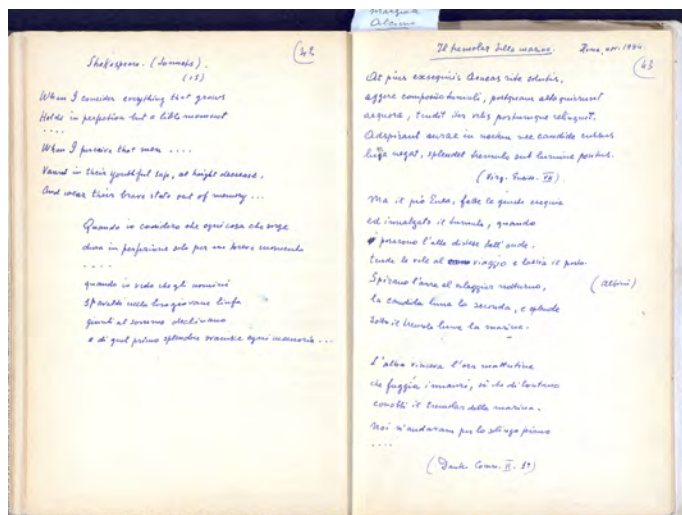 Shakespeare. (Sonnets).
(15)
42
When I consider everything that grows
Holds in perfection but a little moment
....
When I perceive that men ....
Vaunt in their youthful sap, at height decrease,
And wear their brave state out of memory ...
Quando io considero che ogni cosa che sorge
dura in perfezione solo per un breve momento
....
quando io vedo che gli uomini
spavaldi nella loro giovane linfa
giunti al sommo declinano
e di quel primo splendore svanisce ogni memoria ...
Il tremolar della marina. Roma, nov. 1984.
43
At pius exsequiis Aeneas rite solutis,
aggere composito tumuli, postquam alta quierunt
aequora, tendit iter velis portumque relinquit.
Adspirant aurae in noctem nec candida cursus
luna negat, splendet tremulo sub lumine pontus.
(Virg. Eneide. VII).
Ma il pio Enea, fatte le giuste esequie
ed innalzato il tumulo, quando
posarono l'alte distese dell'onde,
tende le vele al viaggio e lascia il porto.
Spirano l'aure al veleggiar notturno,
(Albini)
la candida luna lo seconda, e splende
sotto il tremulo lume la marina.
L'alba vinceva l'ora mattutina
che fuggia innanzi, sì che di lontano
conobbi il tremolar della marina.
Noi andavam per lo solingo piano
....
(Dante Comm. II. 1)